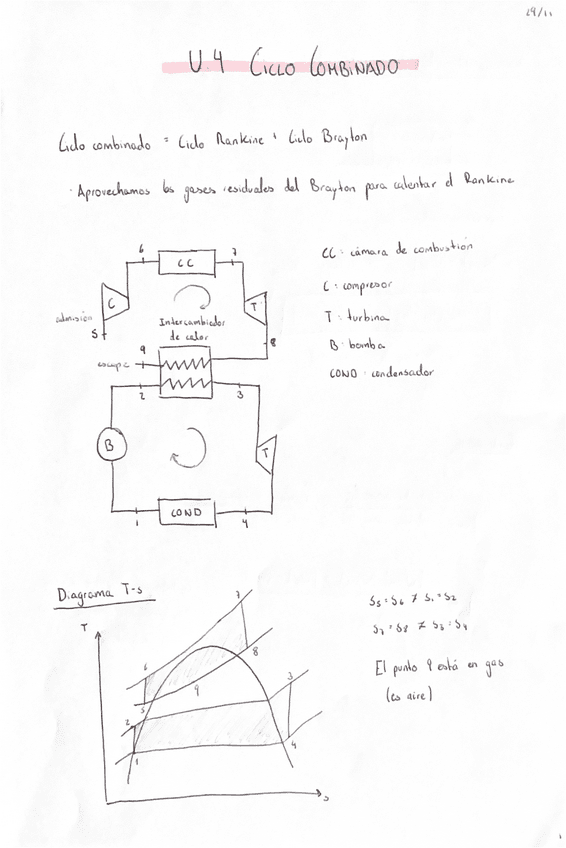 29/11
U.4 CICLO COMBINADO
Ciclo combinado = Ciclo Rankine + Ciclo Brayton
· Aprovechamos los gases residuales del Brayton para calentar el Rankine
6
CC
7
C
T
admisión
5
Intercambiador
de calor
8
9
escape
2
3
B
T
COND
1
4
CC: cámara de combustión
C: compresor
T: turbina
B: bomba
COND: condensador
Diagrama T-s
T
7
6
8
5
9
3
2
1
4
s
S5 = S6 ≠ S1 = S2
S7 = S8 ≠ S3 = S4
El punto 9 está en gas
(es aire)